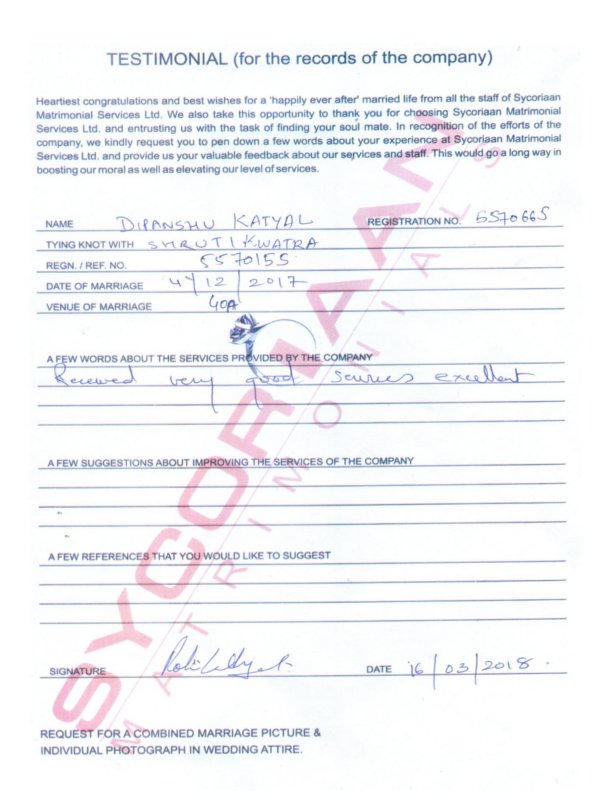 TESTIMONIAL (for the records of the company)
Heartiest congratulations and best wishes for a 'happily ever after' married life from all the staff of Sycoriaan
Matrimonial Services Ltd. We also take this opportunity to thank you for choosing Sycoriaan Matrimonial
Services Ltd. and entrusting us with the task of finding your soul mate. In recognition of the efforts of the
company, we kindly request you to pen down a few words about your experience at Sycoriaan Matrimonial
Services Ltd. and provide us your valuable feedback about our services and staff. This would go a long way in
boosting our moral as well as elevating our level of services.
NAME DIPANSHU KATYAL REGISTRATION NO. 5570665
TYING KNOT WITH SHRUTI KWATRA
REGN. / REF. NO. 5570155
DATE OF MARRIAGE 4 12 2017
VENUE OF MARRIAGE GOA
A FEW WORDS ABOUT THE SERVICES PROVIDED BY THE COMPANY
Received very good services excellent
A FEW SUGGESTIONS ABOUT IMPROVING THE SERVICES OF THE COMPANY
A FEW REFERENCES THAT YOU WOULD LIKE TO SUGGEST
SIGNATURE DATE 16/03/2018.
REQUEST FOR A COMBINED MARRIAGE PICTURE &
INDIVIDUAL PHOTOGRAPH IN WEDDING ATTIRE.
SYCORIAAN
MATRIMONIALS